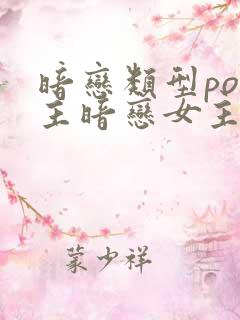 暗戀類型po
主暗戀女主
蒙少祥